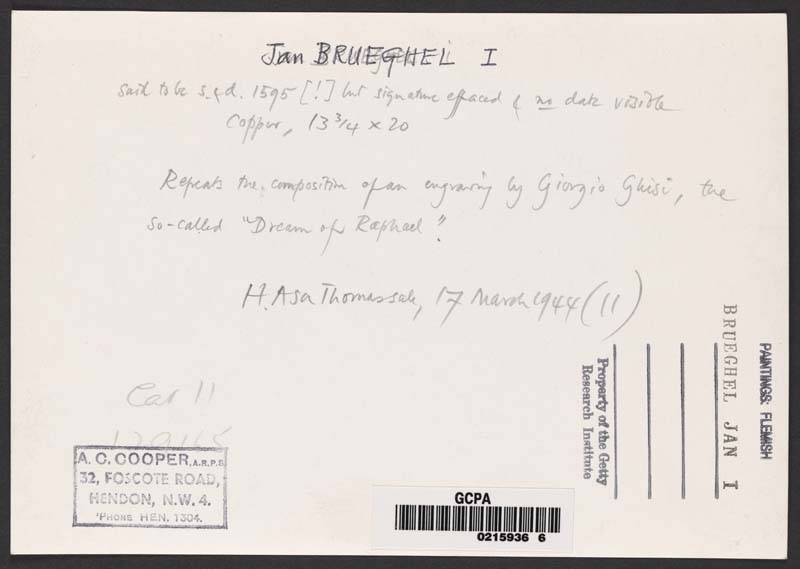 Jan BRUEGHEL I
said to be s. & d. 1595 [!] but signature effaced & no date visible
Copper, 13 3/4 x 20
Repeats the composition of an engraving by Giorgio Ghisi, the
so-called "Dream of Raphael".
H. Asa Thomas sale, 17 March 1944 (11)
Cat 11
A. C. COOPER, A.R.P.S.
32, FOSCOTE ROAD,
HENDON, N.W. 4.
'PHONE HEN. 1304.
GCPA
0215936 6
Property of the Getty
Research Institute
BRUEGHEL JAN I
PAINTINGS: FLEMISH